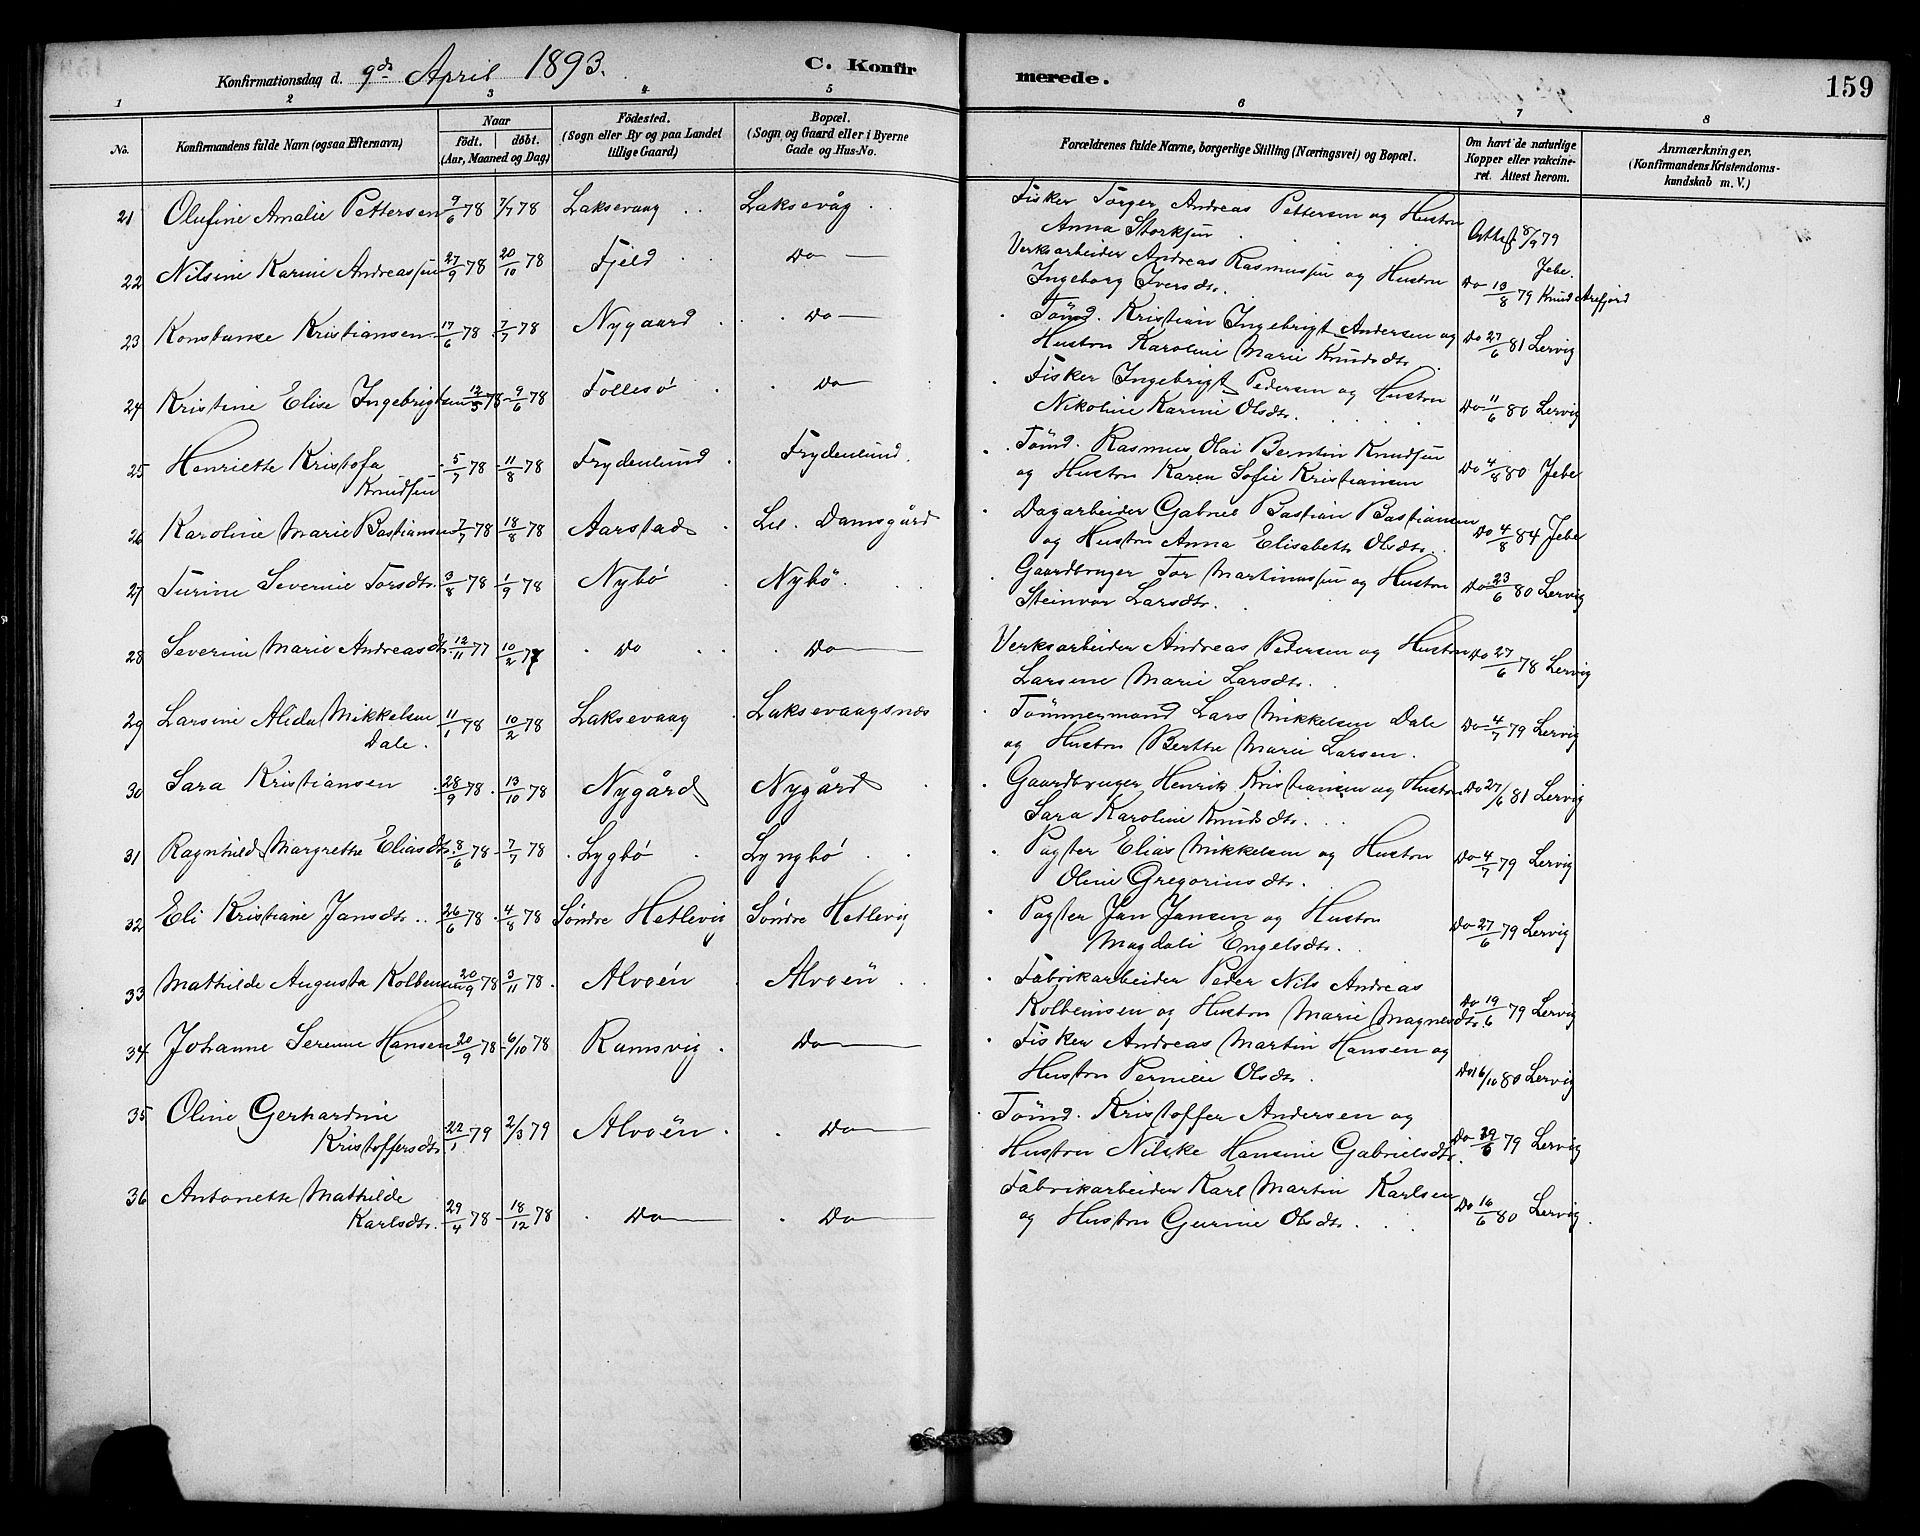 Konfirmationsdag d. 9de April 1893.
C. Konfir
merede.
159
1
2
3
4
5
6
7
8
No.
Konfirmandens fulde Navn (ogsaa Efternavn)
Naar
født. døbt.
(Aar, Maaned og Dag)
Fødested.
(Sogn eller By og paa Landet
tillige Gaard)
Bopæl.
(Sogn og Gaard eller i Byerne
Gade og Hus-No.
Forældrenes fulde Navne, borgerlige Stilling (Næringsvei) og Bopæl.
Om havt de naturlige
Kopper eller vakcine-
ret. Attest herom.
Anmærkninger.
(Konfirmandens Kristendoms-
kundskab m. V.)
21 Olufine Amalie Pettersen 9/6 78 7/7 78 Laksevaag Laksevåg Fisker Torger Andreas Pettersen og Hustru
Anna Storksen Atte 8/9 79
Jebe.
22 Nilsine Karine Andreassen 27/9 78 20/10 78 Fjeld Do Verksarbeider Andreas Rasmussen og Hustru
Ingeborg Iversdtr. Do 13/8 79 Knud Arefjord
23 Konstanse Kristiansen 17/6 78 7/7 78 Nygaard Do Tømd. Kristian Ingebrigt Andersen og
Hustru Karoline Marie Knudsdtr. Do 27/6 81 Lervig
24 Kristine Elise Ingebrigtsen 12/5 78 9/6 78 Follesø Do Fisker Ingebrigt Pedersen og Hustru
Nikoline Karine Olsdtr. Do 11/6 80 Lervig
25 Henriette Kristofa
Knudsen 5/7 78 11/8 78 Frydenlund Frydenlund Tømd. Rasmus Olai Berntin Knudsen
og Hustru Karen Sofie Kristiansen Do 4/8 80 Jebe
26 Karoline Marie Bastiansen 7/7 78 18/8 78 Aarstad Lil. Damsgård Dagarbeider Gabriel Bastian Bastiansen
og Hustru Anna Elisabeth Olsdtr. Do 4/8 84 Jebe
27 Turine Severine Torsdtr. 3/8 78 1/9 78 Nybø Nybø. Gaardbruger Tor Martinussen og Hustru
Steinvor Larsdtr. Do 23/6 80 Lervig
28 Severine Marie Andreasdtr. 12/11 77 10/2 77 Do Do Verksarbeider Andreas Pedersen og Hustru
Larsine Marie Larsdtr. Do 27/6 78 Lervig
29 Larsine Alida Mikkelsen
Dale. 11/1 98 10/2 78 Laksevaag Laksevaagsnæs Tømmermand Lars Mikkelsen Dale
og Hustru Berthe Marie Larsen. Do 4/7 79 Lervig
30 Sara Kristiansen 28/9 78 13/10 78 Nygård Nygård Gaardbruger Henrik Kristiansen og Hustru
Sara Karoline Knudsdtr. Do 27/6 81 Lervig
31 Ragnhild Margrethe Eliasdtr. 8/6 78 7/7 78 Lygbø Lyngbø Pagter Elias Mikkelsen og Hustru
Oline Gregoriusdtr. Do 4/7 79 Lervig
32 Eli Kristiane Jansdtr. 26/6 78 4/8 78 Søndre Hetlevig Søndre Hetlevig Pagter Jan Jansen og Hustru
Magdali Engelsdtr. Do 27/6 79 Lervig
33 Mathilde Augusta Kolbensen 20/9 78 3/11 78 Alvøen Alvøen Fabrikarbeider Peder Nils Andreas
Kolbeinsen og Hustru Marie Magnesdtr. Do 19/6 79 Lervig
34 Johanne Serenne Hansen 20/9 78 6/10 78 Ramsvig Do Fisker Andreas Martin Hansen og
Hustru Pernille Olsdtr. Do 16/10 80 Lervig
35 Oline Gerhardine
Kristoffersdtr. 22/1 79 2/3 79 Alvøen Do Tømd. Kristoffer Andersen og
Hustru Nilske Hansine Gabrielsdtr. Do 29/6 79 Lervig
36 Antonette Mathilde
Karlsdtr. 29/4 78 18/12 78 Do Do Fabrikarbeider Karl Martin Karlsen
og Hustru Gurine Olsdtr. Do 16/6 80 Lervig